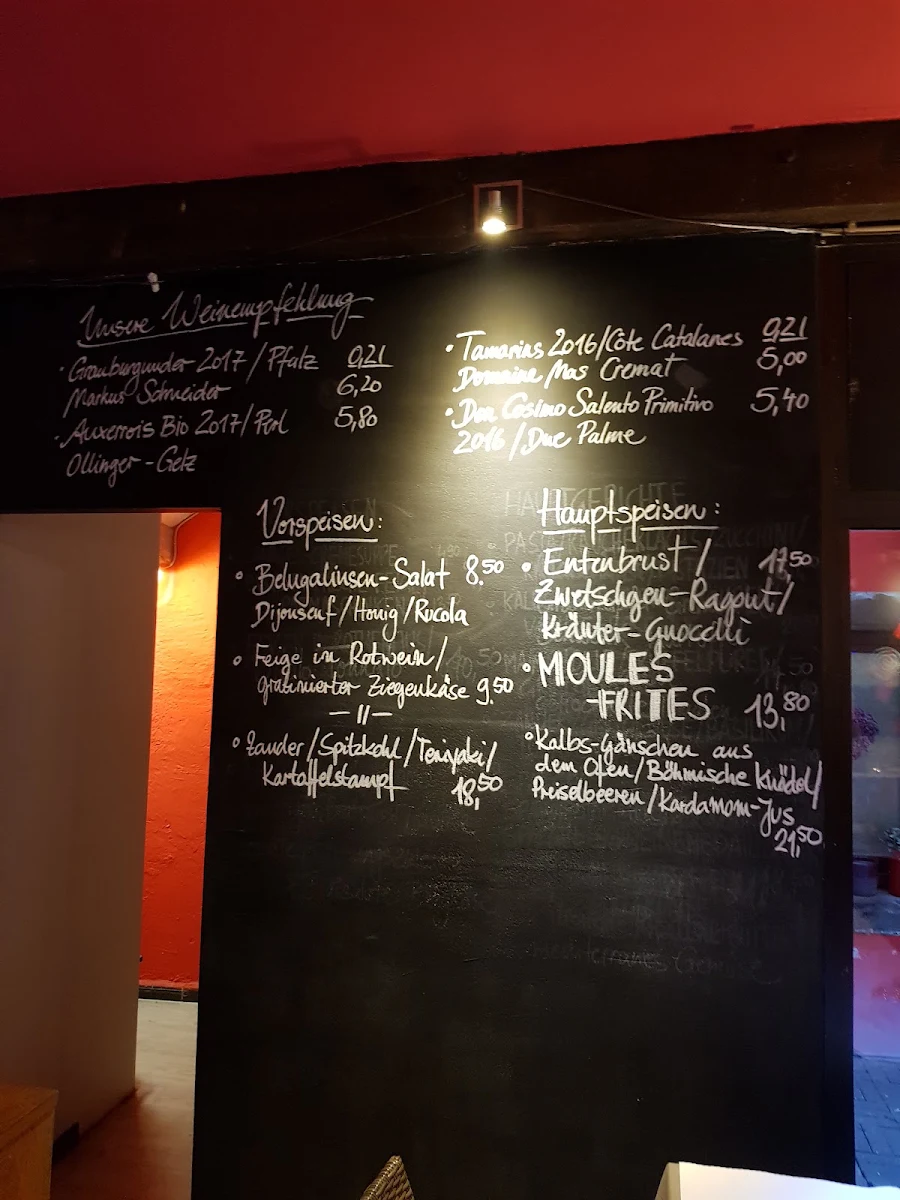 Unsere Weinempfehlung
• Grauburgunder 2017 / Pfalz 0,2l
Markus Schneider 6,20
• Auxerrois Bio 2017 / Perl 5,80
Ollinger-Gelz
• Tamarius 2016/Côte Catalanes 0,2l
Domaine Mas Cremat 5,00
• Don Cosimo Salento Primitivo 5,40
2016 / Due Palme
Vorspeisen:
• Belugalinsen-Salat 8.50
Dijonsenf/Honig/Rucola
• Feige in Rotwein/
gratinierter Ziegenkäse 9.50
— 11 —
• Zander/Spitzkohl/Teriyaki/
Kartoffelstampf 18,50
Hauptspeisen:
• Entenbrust / 17,50
Zwetschgen-Ragout/
Kräuter-Gnocchi
• MOULES
-FRITES 13,80
• Kalbs-Gänschen aus
dem Ofen/Böhmische Knödel/
Preiselbeeren/Kardamom-Jus
21,50